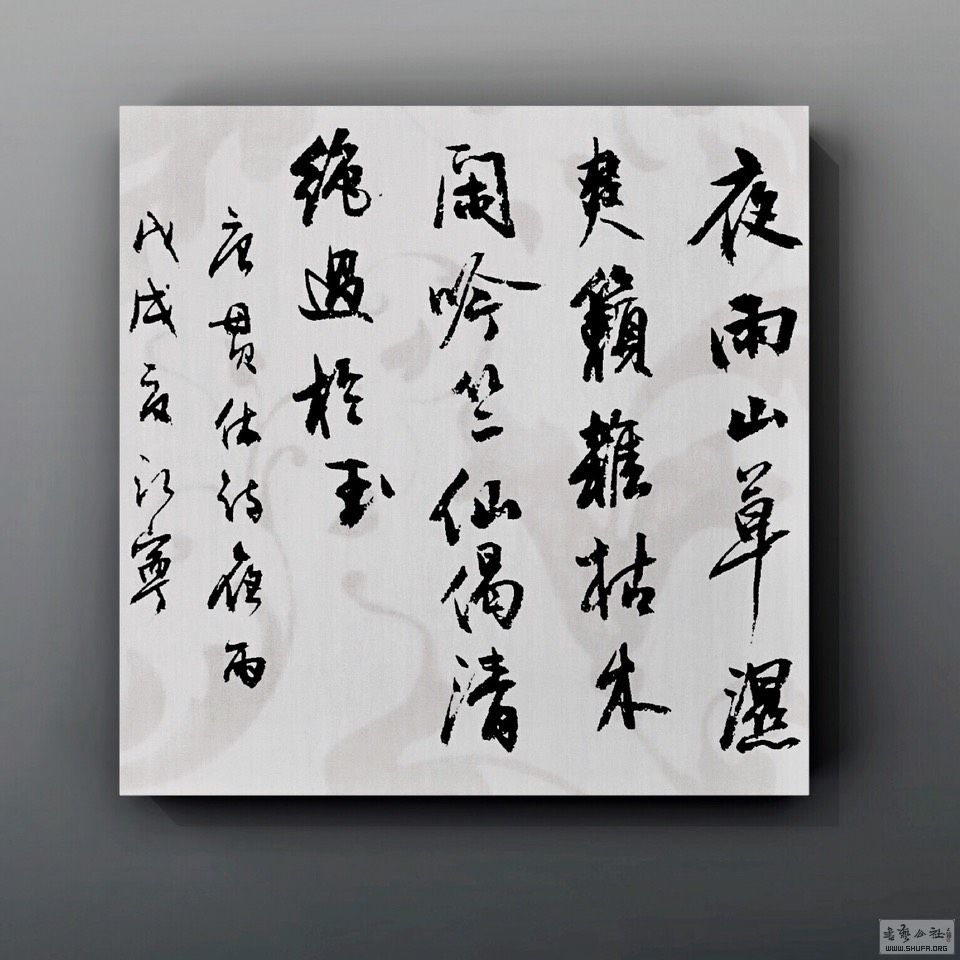 夜雨山草濕
爽籟雜枯木
閑吟竺仙偈清
絶過於玉
唐貫休詩夜雨
戊戌夏江寧
书艺公社
WWW.SHUFA.ORG